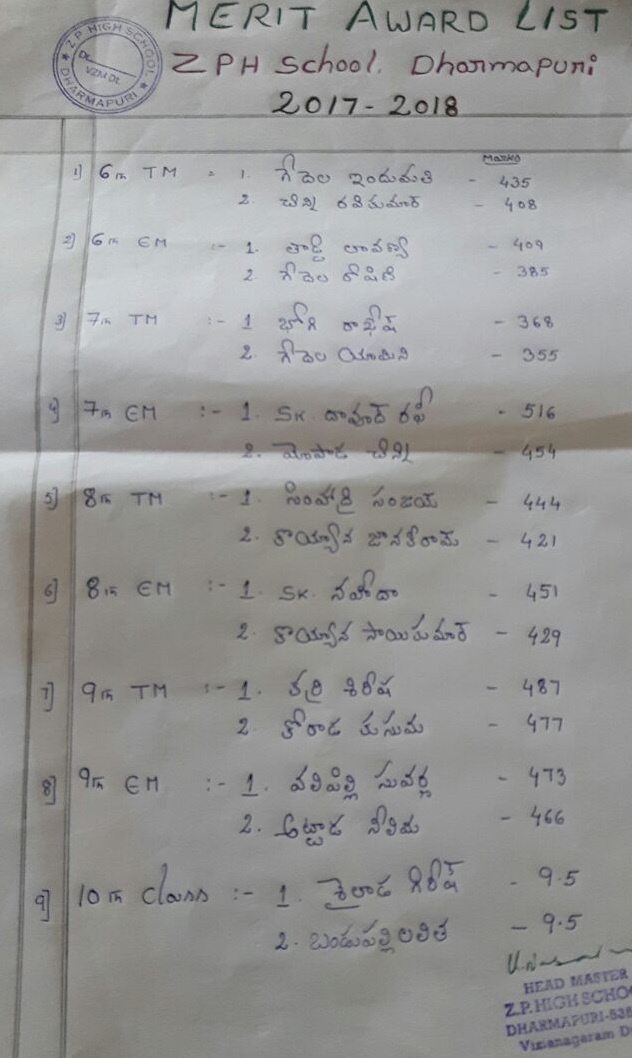 MERIT AWARD LIST
Z.P. HIGH SCHOOL
VZM Dt.
DHARMAPURI
ZPH School. Dharmapuri
2017-2018
Marks
1) 6th TM - 1. గేదెల ఇందుమతి - 435
2. చిన్ని రవికుమార్ - 408
2) 6th EM :- 1. లావణ్య - 409
2 గేదెల రోషిణి - 385
3) 7th TM :- 1 భోగి రాఖేష్ - 368
2. గేదెల యామిని - 355
4) 7th EM :- 1. SK దావూద్ రఫీ - 516
2. మోపాడ చిన్ని - 454
5) 8th TM :- 1. సింహాద్రి సంజయ్ - 444
2. కొయ్యాన జానకీరామ్ - 421
6) 8th EM :- 1. SK. నహీదా - 451
2. కొయ్యాన సాయికుమార్ - 429
7) 9th TM :- 1. కర్రి శిరీష - 487
2. కోరాడ కుసుమ - 477
8) 9th EM :- 1. వలిపిల్లి సువర్ణ - 473
2. అట్టాడ నీలిమ - 466
9) 10th Class :- 1. శైలాడ గిరీష్ - 9.5
2. బండుపల్లి లలిత - 9.5
HEAD MASTER
Z.P. HIGH SCHOO
DHARMAPURI-535
Vizianagaram D